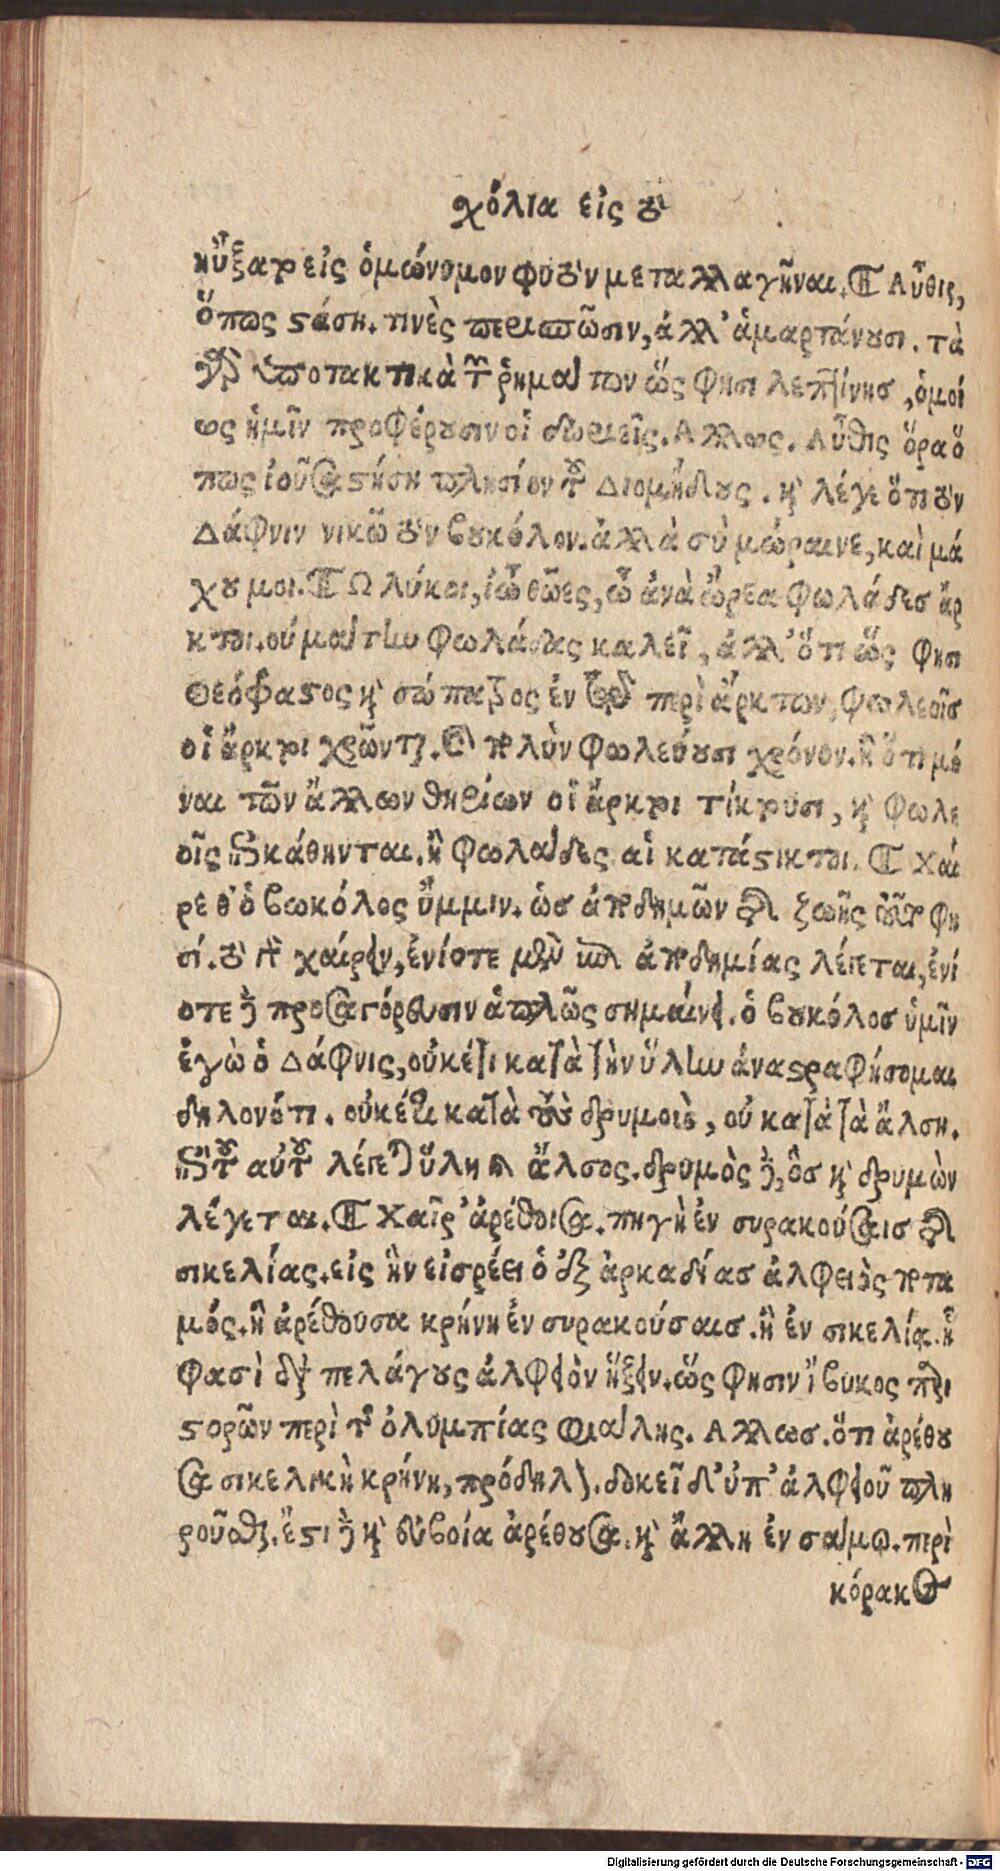 χόλια εἰς τὸ
ηὔξαρεἰς ὁμώνυμον φυτὸν μεταλλαγῆναι. Αὖθις,
ὅπως στάσῃ. τινὲς περισπῶσιν, ἀλλ' ἁμαρτάνουσι. τὰ
γὰρ ὑποτακτικὰ τῶν ῥημάτων ὥς φησι λεπτίνης, ὁμοί
ως ἡμῖν προφέρουσιν οἱ δωριεῖς. Ἄλλως. Αὖθις ὅρα ὅ
πως ἰοῦσα στήσῃ πλησίον τοῦ Διομήδους. καὶ λέγε ὅτι τὸν
Δάφνιν νικῶ τὸν βουκόλον. ἀλλὰ σὺ μώραινε, καὶ μά
χου μοι. Ὦ λύκοι, ἰὼ θῶες, ὦ ἀνὰ ὤρεα φωλάδες ἄρ
κτοι. οὐ μάτην φωλάδας καλεῖ, ἀλλ' ὅτι ὥς φησι
Θεόφραστος καὶ σώπατρος ἐν τῷ περὶ ἄρκτων, φωλεοῖς
οἱ ἄρκτοι χρῶνται. καὶ πολὺν φωλεύουσι χρόνον. ἢ ὅτι μό
ναι τῶν ἄλλων θηρίων οἱ ἄρκτοι τίκτουσι, καὶ φωλε
οῖς ἐγκάθηνται. ἢ φωλάδες αἱ κατάστικτοι. Χαί
ρεθ' ὁ βωκόλος ὔμμιν. ὡς ἀποδημῶν τῆς ζωῆς φη
σί. τὸ δὲ χαίρειν, ἐνίοτε μὲν ἐπὶ ἀποδημίας λέγεται, ἐνί
οτε δὲ προσαγόρευσιν ἁπλῶς σημαίνει. ὁ βουκόλος ὑμῖν
ἐγὼ ὁ Δάφνις, οὐκέτι κατὰ τὴν ὕλην ἀναστραφήσομαι
δηλονότι. οὐκέτι κατὰ τοὺς δρυμοὺς, οὐ κατὰ τὰ ἄλση.
τοῦ αὐτοῦ λέγεται ὕλη καὶ ἄλσος. δρυμὸς δὲ, ὃς καὶ δρυμὼν
λέγεται. Χαῖρ' ἀρέθοισα. πηγὴ ἐν συρακούσαις τῆς
σικελίας. εἰς ἣν εἰσρέει ὁ ἐξ ἀρκαδίας ἀλφειὸς ποτα
μός. ἢ ἀρέθουσα κρήνη ἐν συρακούσαις. ἢ ἐν σικελίᾳ. ᾗ
φασὶ διὰ πελάγους ἀλφειὸν ἥξειν. ὥς φησιν ἴβυκος παρι
στορῶν περὶ τῆς ὀλυμπίας φιάλης. Ἄλλως. ὅτι ἀρέθου
σα σικελικὴ κρήνη, πρόδηλον. δοκεῖ δ' ὑπ' ἀλφειοῦ πλη
ροῦσθαι. ἔστι δὲ καὶ εὐβοία ἀρέθουσα. καὶ ἄλλη ἐν σάμῳ. περὶ
κόρακος
Digitalisierung gefördert durch die Deutsche Forschungsgemeinschaft - DFG